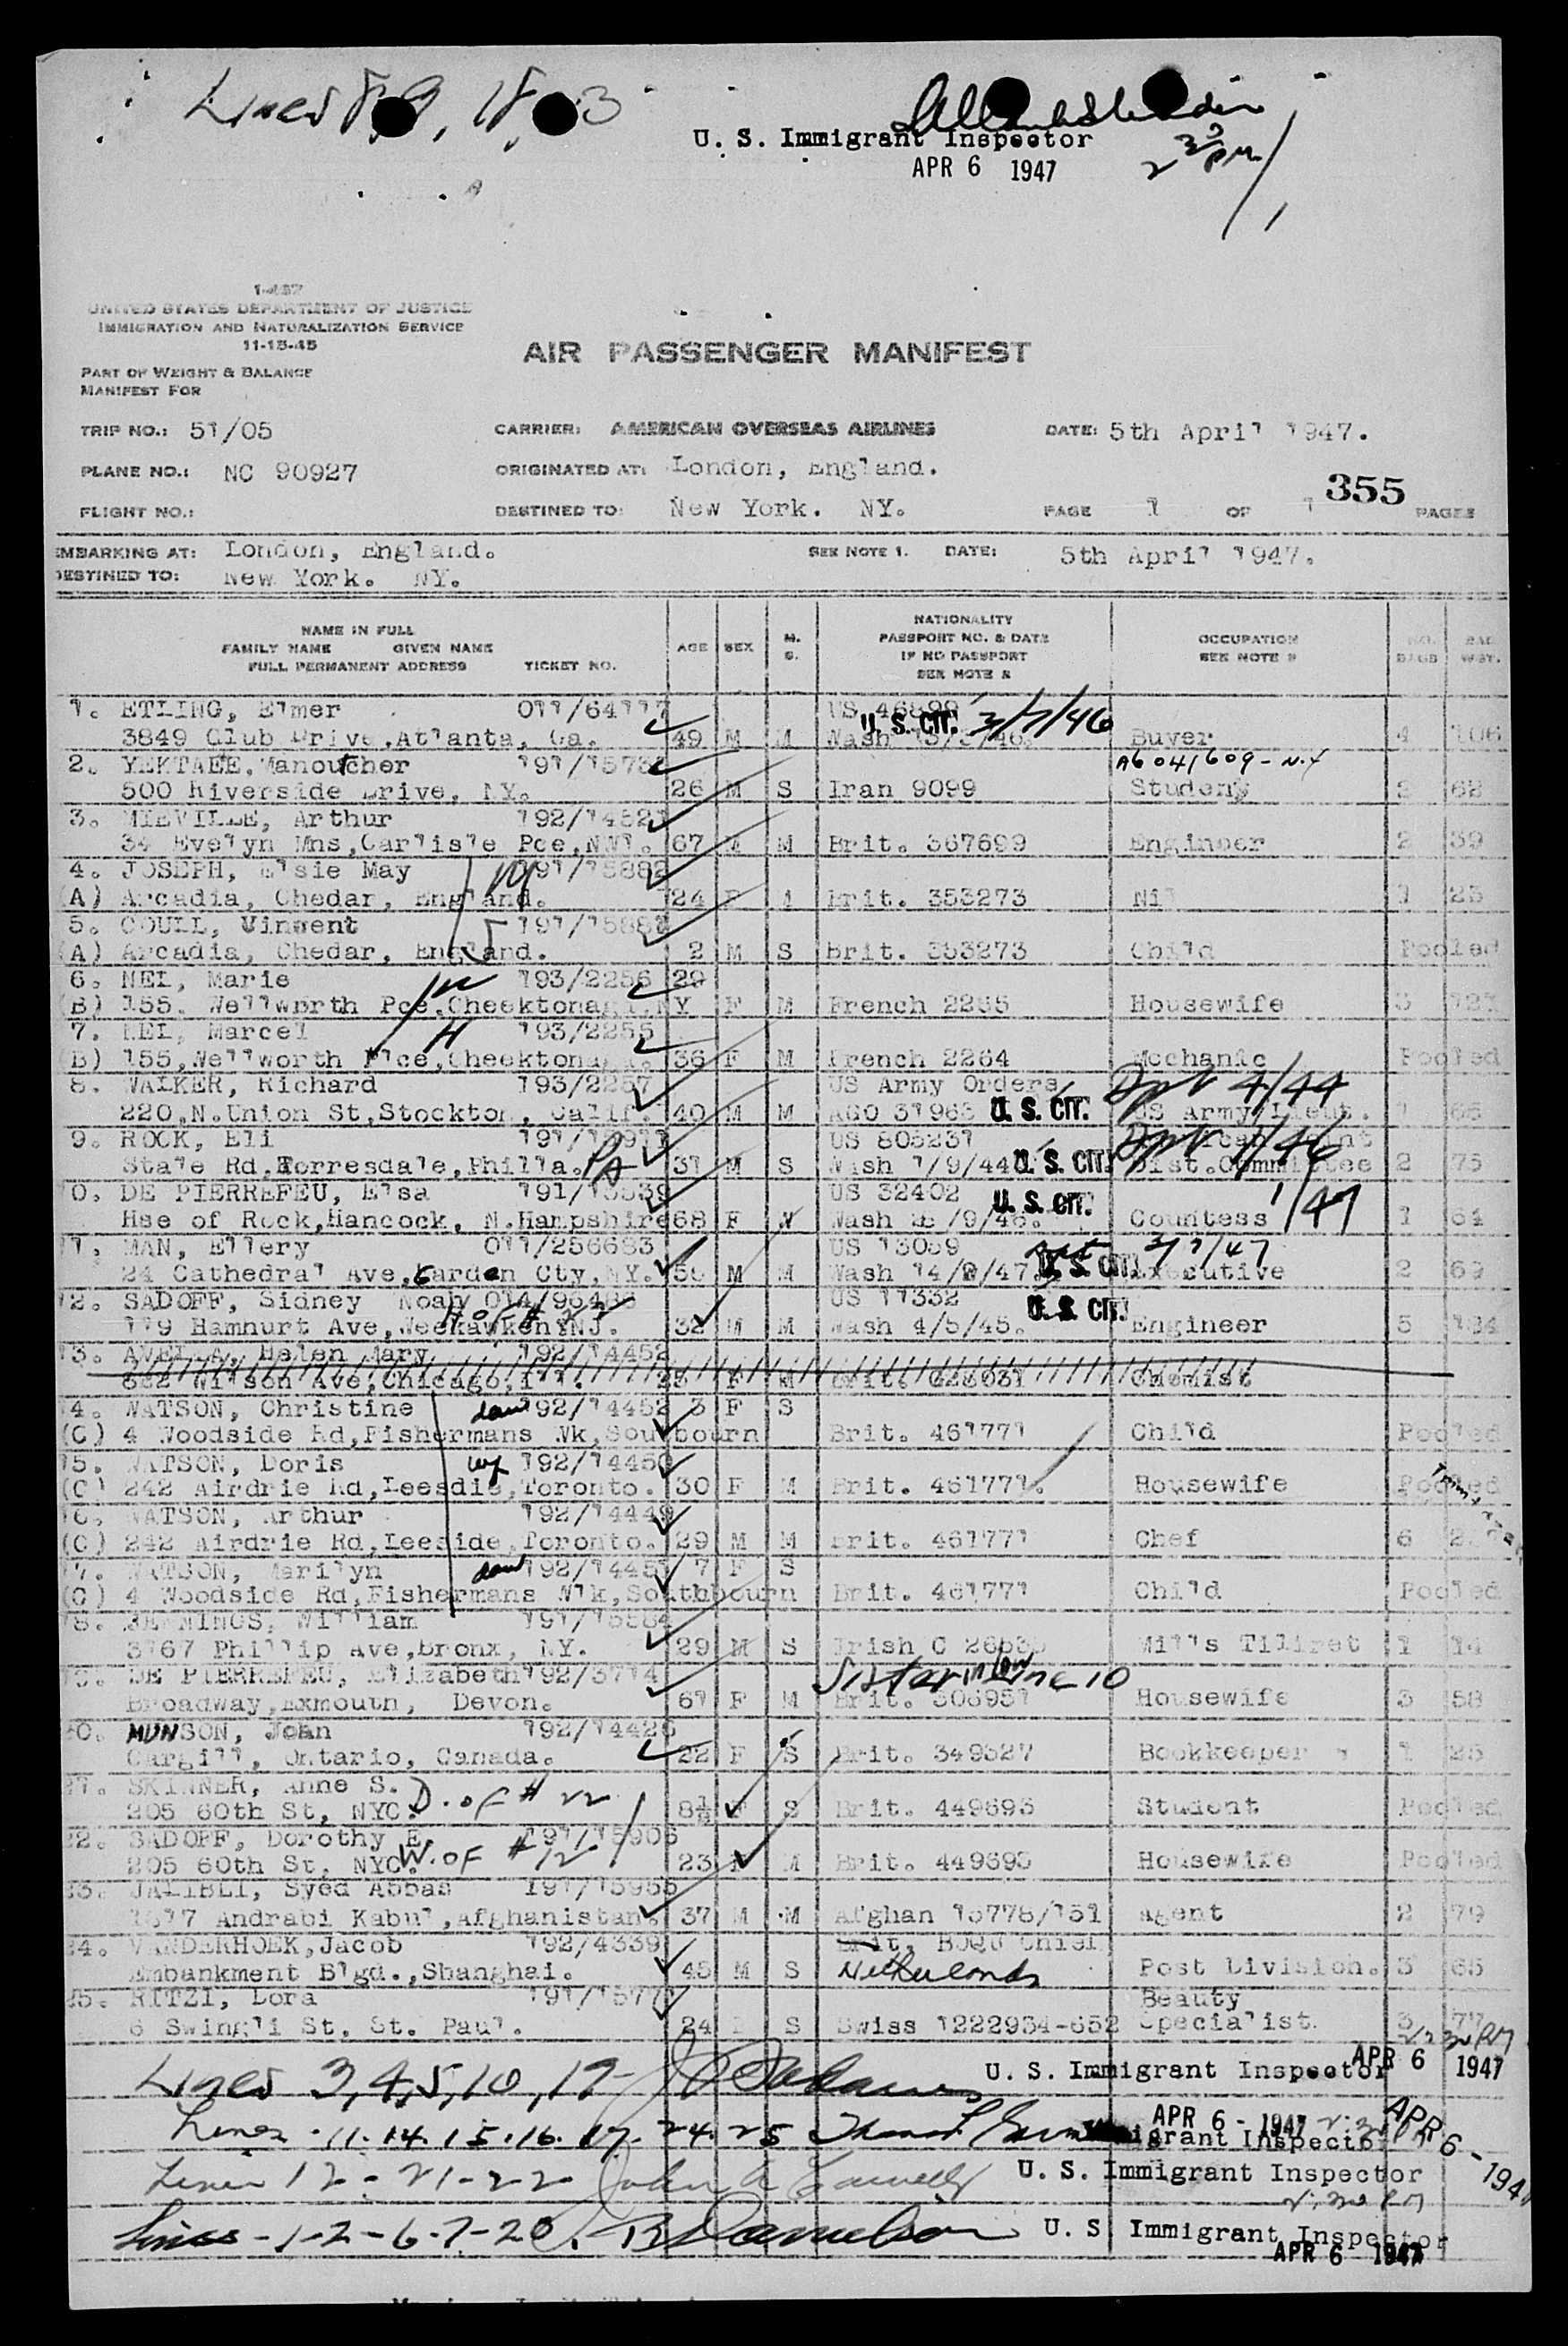 Lines 8, 9, 18, 23
U. S. Immigrant Inspector
APR 6 1947
2 30 P.M.
UNITED STATES DEPARTMENT OF JUSTICE
IMMIGRATION AND NATURALIZATION SERVICE
11-15-45
AIR PASSENGER MANIFEST
PART OF WEIGHT & BALANCE
MANIFEST FOR
TRIP NO.: 51/05 CARRIER: AMERICAN OVERSEAS AIRLINES DATE: 5th April 1947.
PLANE NO.: NC 90927 ORIGINATED AT: London, England.
355
FLIGHT NO.: DESTINED TO: New York. NY. PAGE 1 OF 1 PAGES
EMBARKING AT: London, England. SEE NOTE 1. DATE: 5th April 1947.
DESTINED TO: New York. NY.
NAME IN FULL
FAMILY NAME GIVEN NAME
FULL PERMANENT ADDRESS TICKET NO.
AGE SEX M. S.
NATIONALITY
PASSPORT NO. & DATE
IF NO PASSPORT
SEE NOTE 2
OCCUPATION
SEE NOTE 2
NO. BAGS
BAG WGT.
1. ETLING, Elmer 011/64117 US 46899
3849 Club Drive, Atlanta, Ga. 49 M M Wash U. S. CIT. 3/7/46 Buyer 4 106
2. YEKTAEE, Manoutcher 191/1573 A6041609-N.Y
500 Riverside Drive, NY. 26 M S Iran 9099 Student 2 68
3. MIEVILLE, Arthur 192/14521
34 Evelyn Mns, Carlisle Pce, NW1. 67 M M Brit. 367699 Engineer 2 39
4. JOSEPH, Elsie May 191/15882
(A) Arcadia, Chedar, England. 24 F M Brit. 353273 Nil 1 23
5. COULL, Vincent 191/1588
(A) Arcadia, Chedar, England. 2 M S Brit. 353273 Child Pooled
6. NEL, Marie W 193/2256 29
(B) 155. Wellworth Pce, Cheektonaga, NY F M French 2255 Housewife 3 121
7. NEL, Marcel H 193/2255
(B) 155, Wellworth Plce, Cheektonaga. 36 F M French 2264 Mechanic Pooled
8. WALKER, Richard 193/2257 US Army Orders Dpt 4/44
220, N. Union St, Stockton, Calif. 40 M M AGO 31963 U. S. CIT. US Army, Lieut. 1 65
9. ROCK, Eli 191/ US 805231 Dpt 1/46
State Rd, Torresdale, Philla. PA 31 M S Wash 1/9/44 U. S. CIT. Dist. Committee 2 75
10. DE PIERREFEU, Elsa 191/13539 US 32402 U. S. CIT.
Hse of Rock, Hancock, N. Hampshire 68 F W Wash /9/46. Countess 1/47 1 64
11. MAN, Ellery 011/256633 US 13059 3/7/47
24 Cathedral Ave, Garden Cty, NY. 56 M M Wash 14/2/47. U. S. CIT. Executive 2 69
12. SADOFF, Sidney Noah 014/96486 US 11332 U. S. CIT.
H of # 22
119 Hamnurt Ave, Weekawken NJ. 32 M M Wash 4/5/45. Engineer 5 184
13. AVELLA, Helen Mary 192/14452
Wilson Ave, Chicago, Ill. F M Brit. Chemist
14. WATSON, Christine dau 192/14452 3 F S
(C) 4 Woodside Rd, Fishermans Wk, Soutbourn Brit. 461771 Child Pooled
15. WATSON, Doris wf 192/14450
(C) 242 Airdrie Rd, Leesdie, Toronto. 30 F M Brit. 461771. Housewife Pooled
16. WATSON, Arthur 192/14449
(C) 242 Airdrie Rd, Leeside, Toronto. 29 M M Brit. 461771 Chef 6
17. WATSON, Marilyn dau 192/14451 7 F S
(C) 4 Woodside Rd, Fishermans Wlk, Southbourn Brit. 461771 Child Pooled
18. JENNINGS, William 191/15584
3767 Phillip Ave, Bronx, NY. 29 M S Irish C Mills Tiliret 1 14
19. DE PIERREFEU, Elizabeth 192/3714 Sister in law line 10
Broadway, Exmouth, Devon. 61 F M Brit. 306951 Housewife 3 58
20. MUNSON, Joan 192/14426
Cargill, Ontario, Canada. 22 F S Brit. 349527 Bookkeeper 1 25
21. SKINNER, Anne S. D. of # 22
205 60th St, NYC. 8½ F S Brit. 449693 Student Pooled
22. SADOFF, Dorothy E. 191/15906
205 60th St, NYC. W. of # 12 23 F M Brit. 449693 Housewife Pooled
23. JALIBLI, Syed Abbas 191/15955
1317 Andrabi Kabul, Afghanistan. 37 M M Afghan 15778/151 Agent 2 79
24. VANDERHOEK, Jacob 192/4339 Brit, BOQU Chief
Embankment Blgd., Shanghai. 45 M S Netherlands Post Division. 3 65
25. RITZI, Lora 191/1577 Beauty
6 Swingli St. St. Paul. 24 F S Swiss 1222934-652 Specialist. 3 77
Lines 3, 4, 5, 10, 19 U. S. Immigrant Inspector APR 6 1947 2:30 PM
Lines 11. 14. 15. 16. 17. 24. 25 Immigrant Inspector APR 6 - 1947
Lines 12 - 21 - 22 U. S. Immigrant Inspector APR 6 - 1947
2:30 PM
Lines - 1-2-6-7-20 Danielson U. S. Immigrant Inspector
APR 6 1947